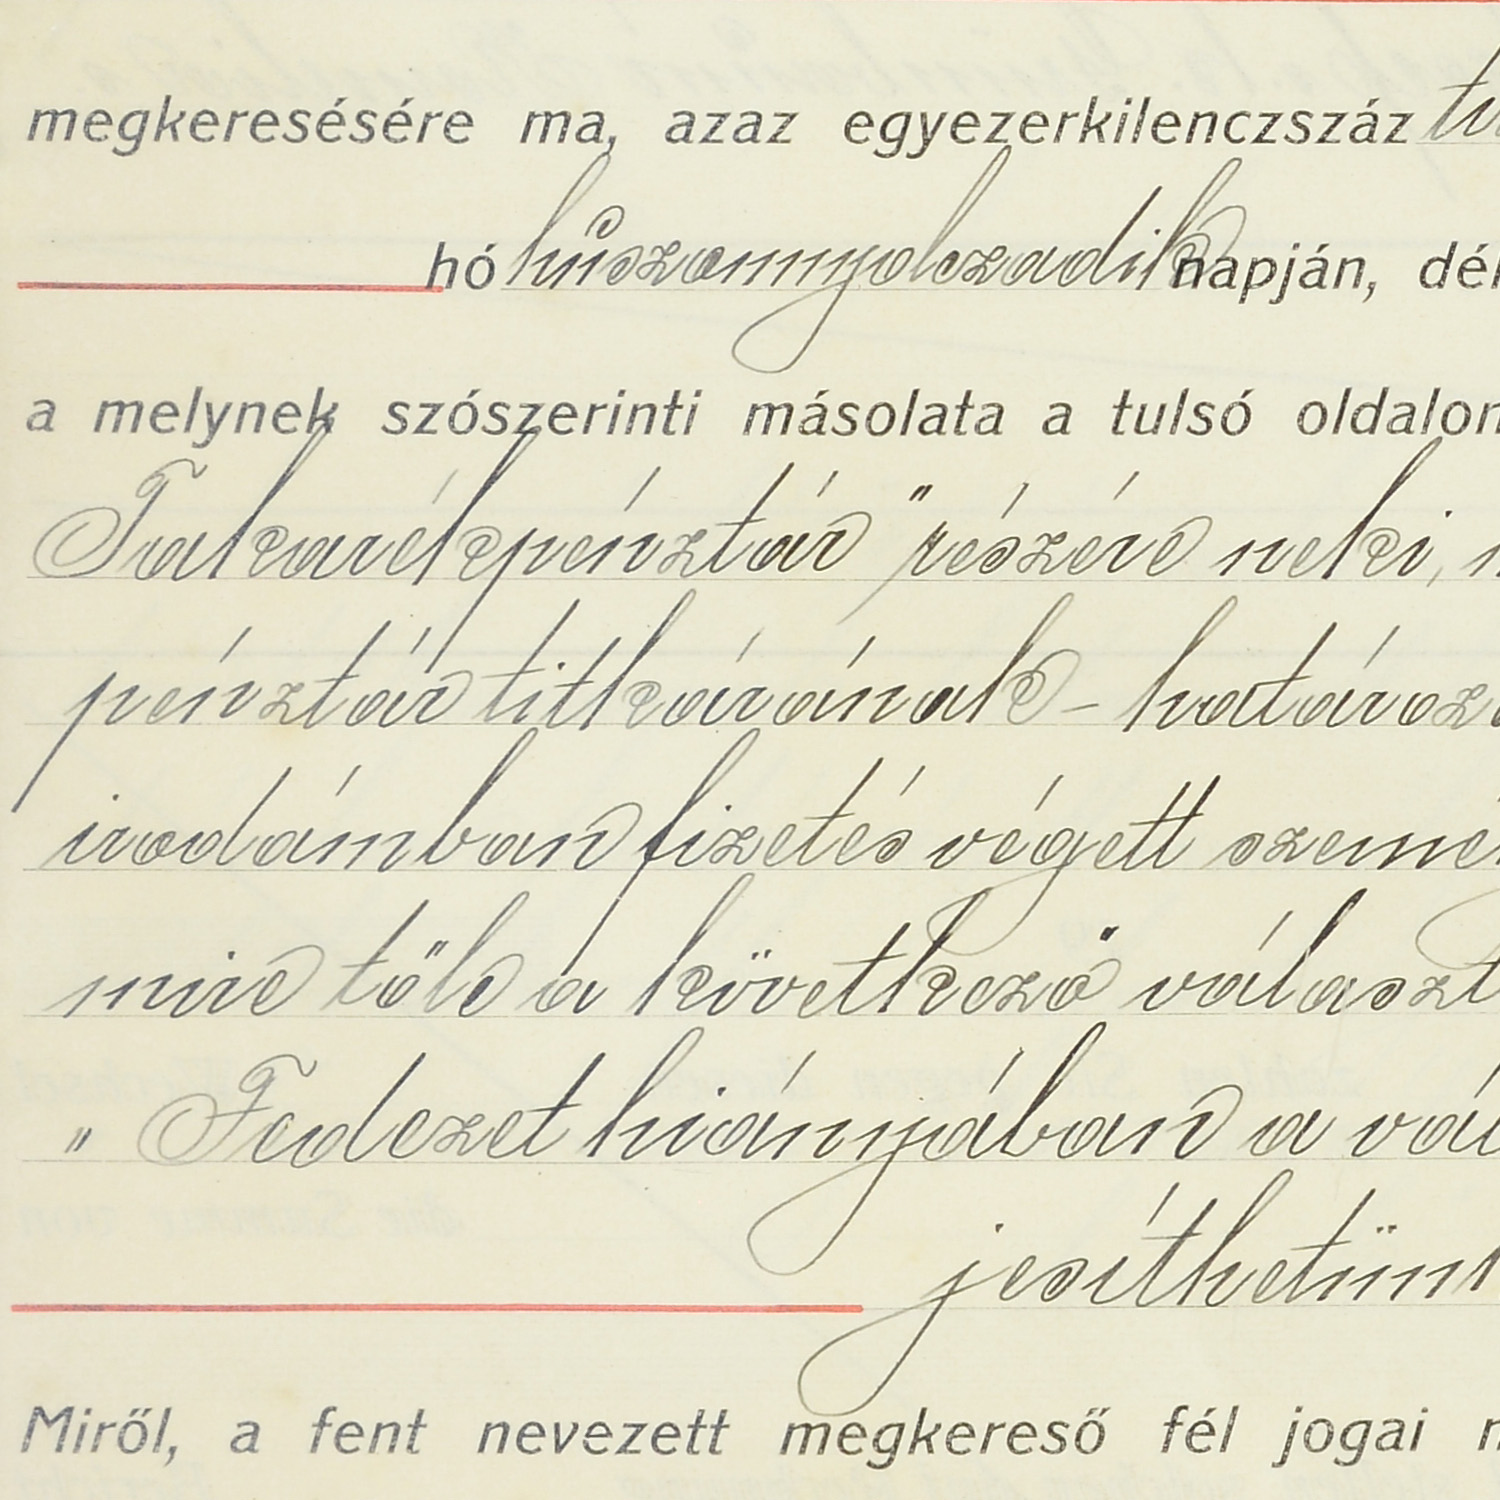 megkeresésére ma, azaz egyezerkilenczszáz
hó huszonnyolczadik napján, dél
a melynek szószerinti másolata a tulsó oldalon
Takarékpénztár" részére neki,
pénztár titkárának - határoz
irodámban fizetés végett szemé
mire tőle a következő választ
„ Fedezet hiányában a vál
jesíthetünk
Miről, a fent nevezett megkereső fél jogai